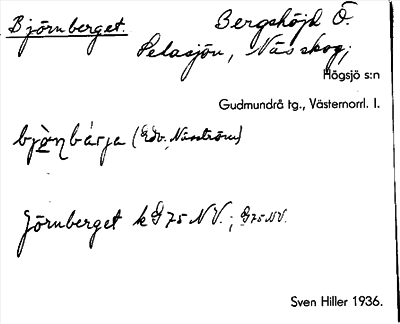 Björnberget. Bergshöjd Ö.
Pelasjön, Näs skog,
Högsjö s:n
Gudmundrå tg., Västernorrl. l.
bjònbárja (Edv. Näsström)
Jörnberget k G 75 NV.; G 75 NV.
Sven Hiller 1936.